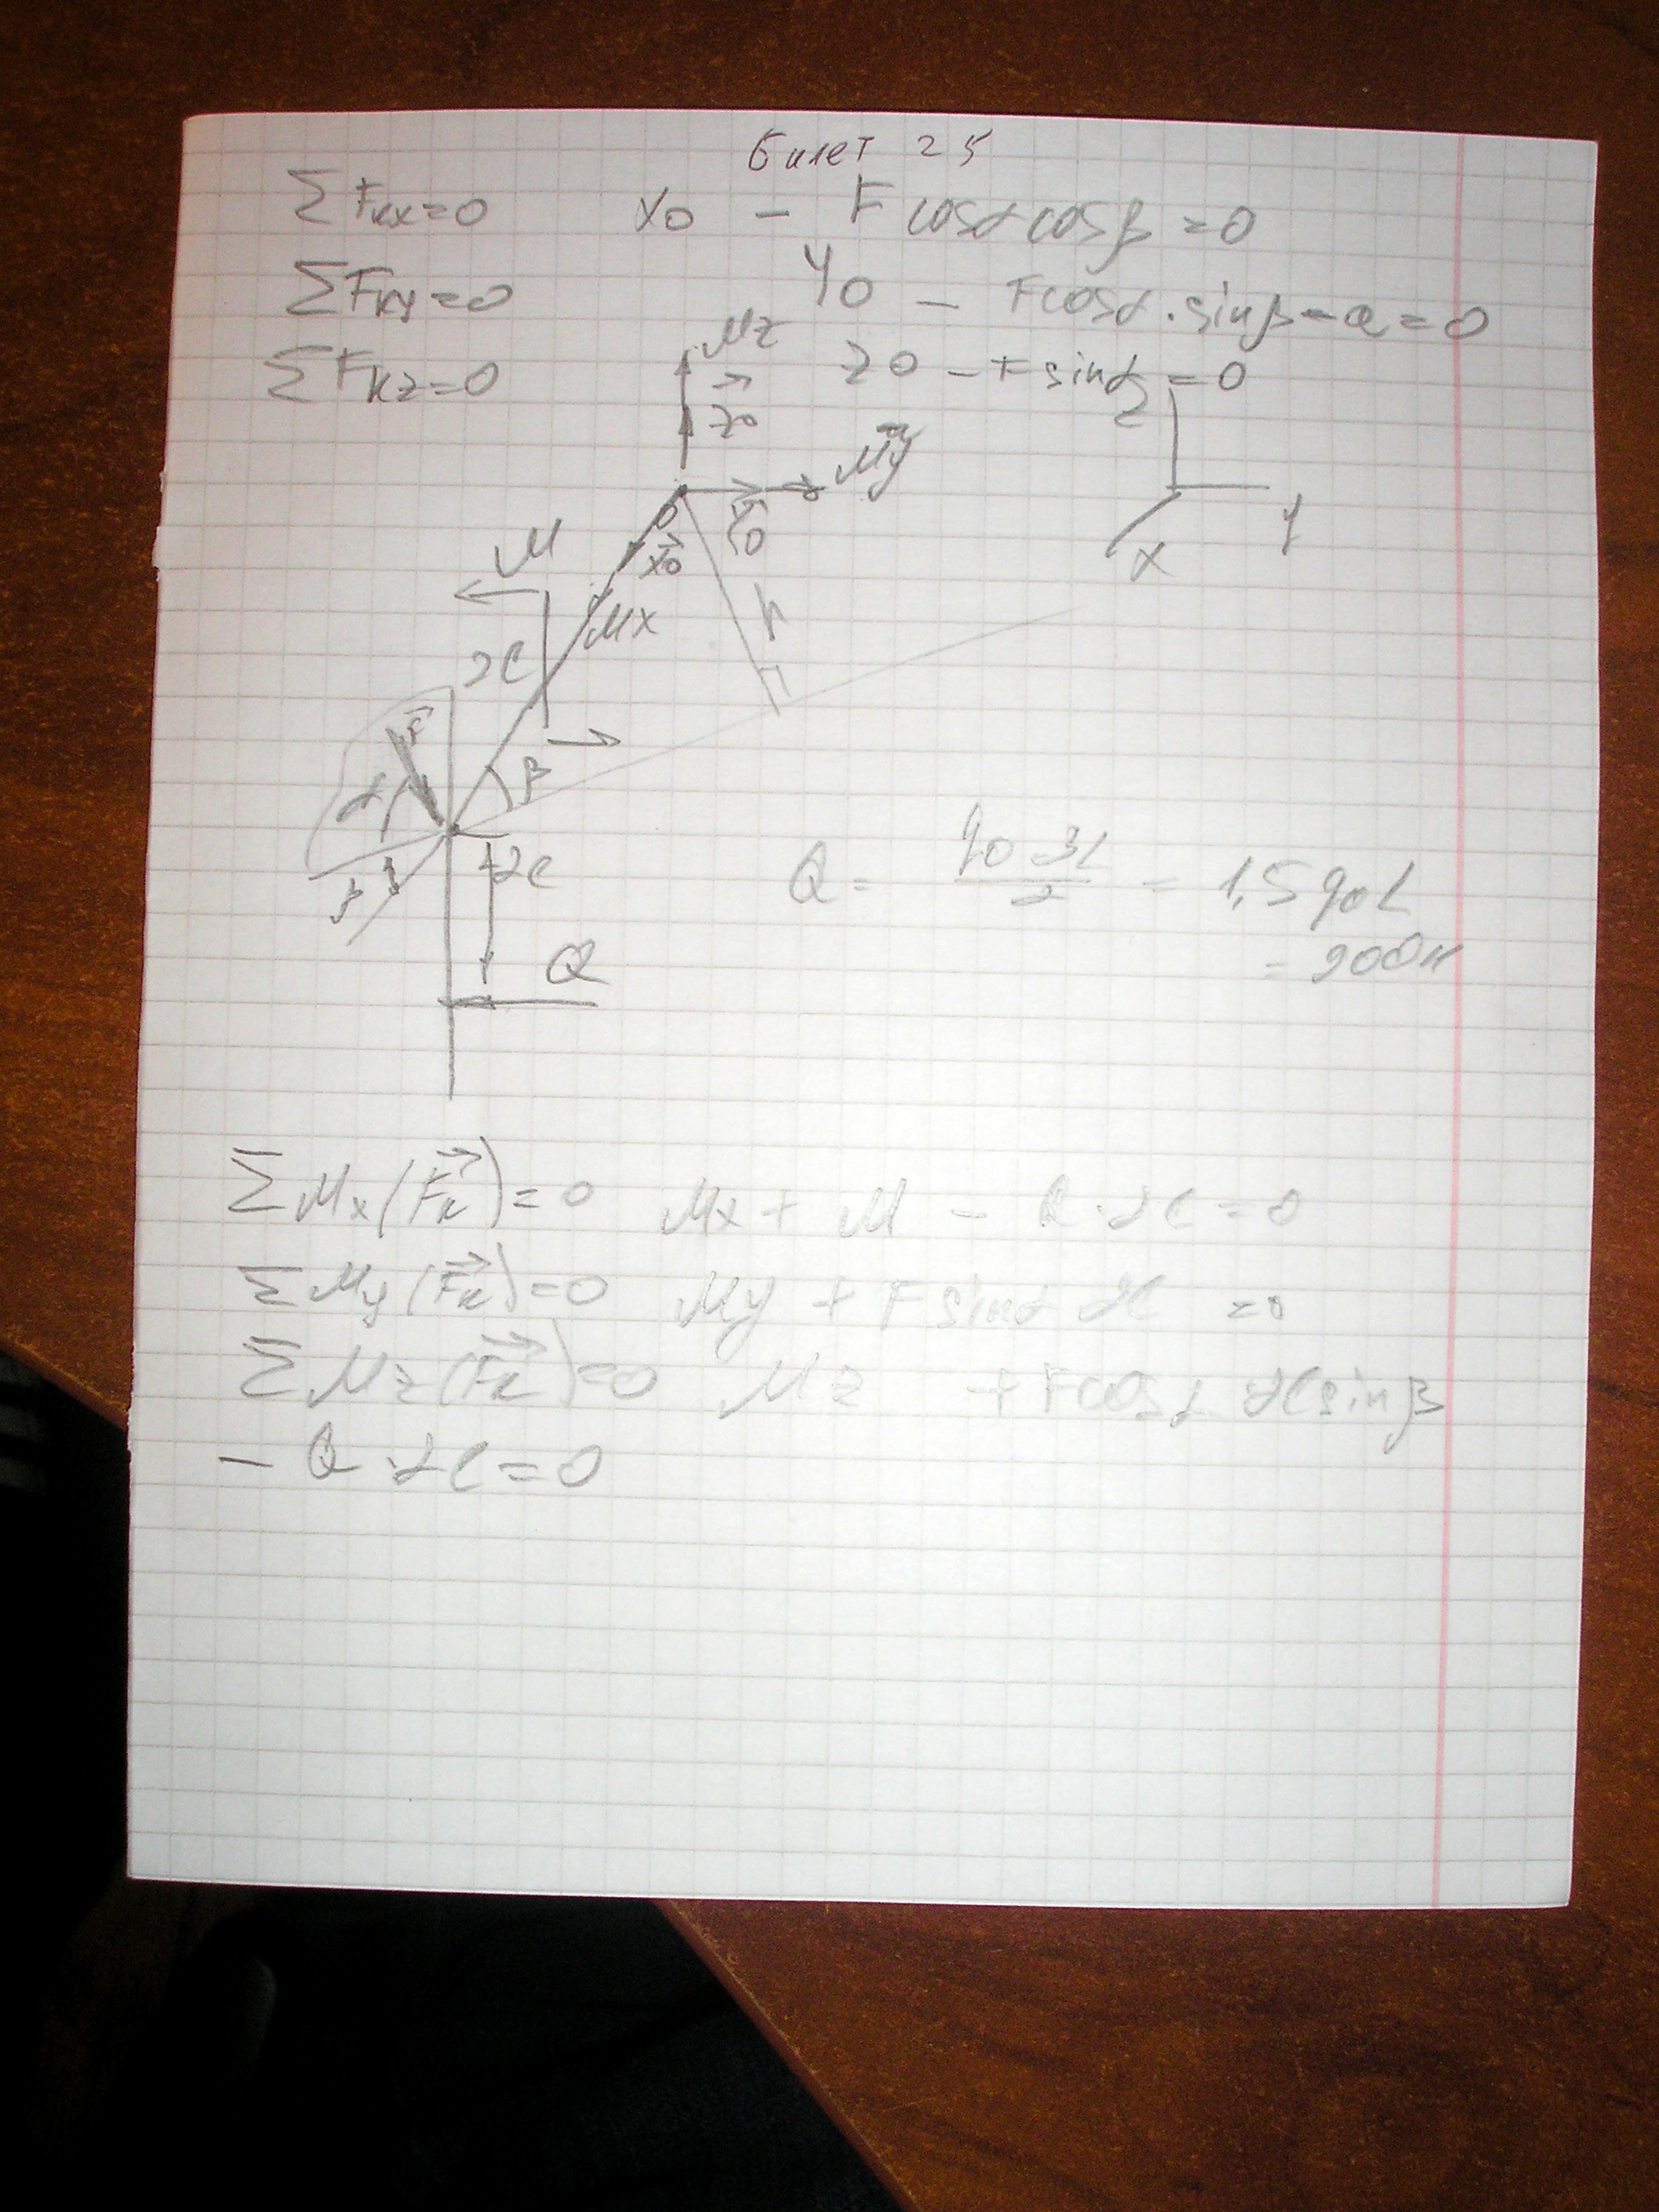 Билет 25
ΣFkx=0 X0 − F cosα cosβ = 0
ΣFky=0 Y0 − Fcosα·sinβ − Q = 0
ΣFkz=0 Z0 − Fsinα = 0
Mz
Z0
My
Z
O
Y0
X0
y
x
M
Mx
h
2l
F
α
β
β
2l
Q
Q = q0 3l / 2 = 1,5 q0 l
= 900н
ΣMx(Fk)=0 Mx + M − Q·2l = 0
ΣMy(Fk)=0 My + F sinα 2l = 0
ΣMz(Fk)=0 Mz + Fcosα 2l sinβ
− Q·2l = 0